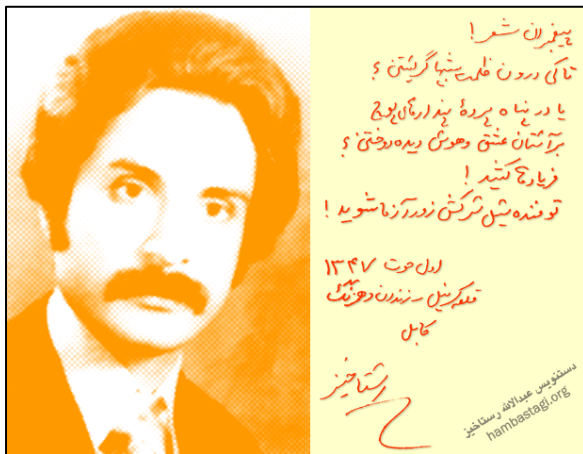 پیغمبران شعر!
تا کی درون ظلمت شبها گریستن؟
یا در پناه پردهٔ پندارهای پوچ
بر آستان عشق و هوس دیده دوختن؟
فریادها کنید!
توفنده سیل سرکش زورآزما شوید!
اول حوت ۱۳۴۷
قلعه کرنیل - زندان دهمزنگ
کابل
رستاخیز
دستنویس عبدالاله رستاخیز
hambastagi.org